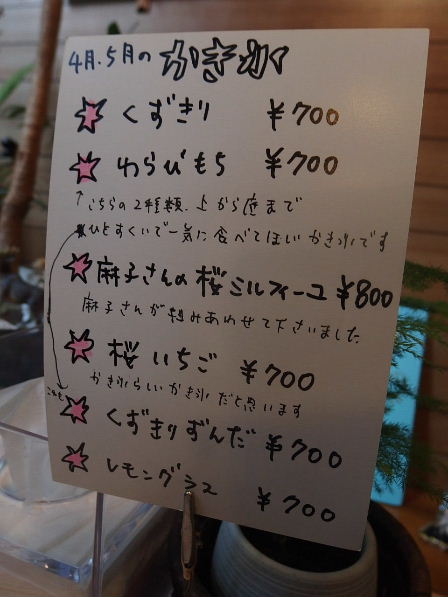 4月.5月の かき氷
くずきり ¥700
わらびもち ¥700
↑こちらの2種類、上から底まで
ひとすくいで一気に食べてほしいかき氷です
麻子さんの桜ミルフィーユ ¥800
麻子さんが組みあわせて下さいました。
桜いちご ¥700
かき氷らしいかき氷だと思います
これも
くずきりずんだ ¥700
レモングラス ¥700